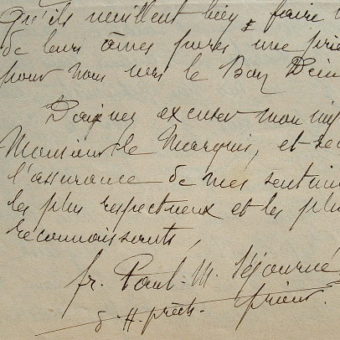 qu'ils veuillent bien faire
de leurs âmes pures une priè
pour nous vers le Bon Dieu
Daignez excuser mon
Monsieur le Marquis, et
l'assurance de mes sentim
les plus respectueux et les plu
reconnaissants,
fr. Paul. M. Séjourné
prieur.